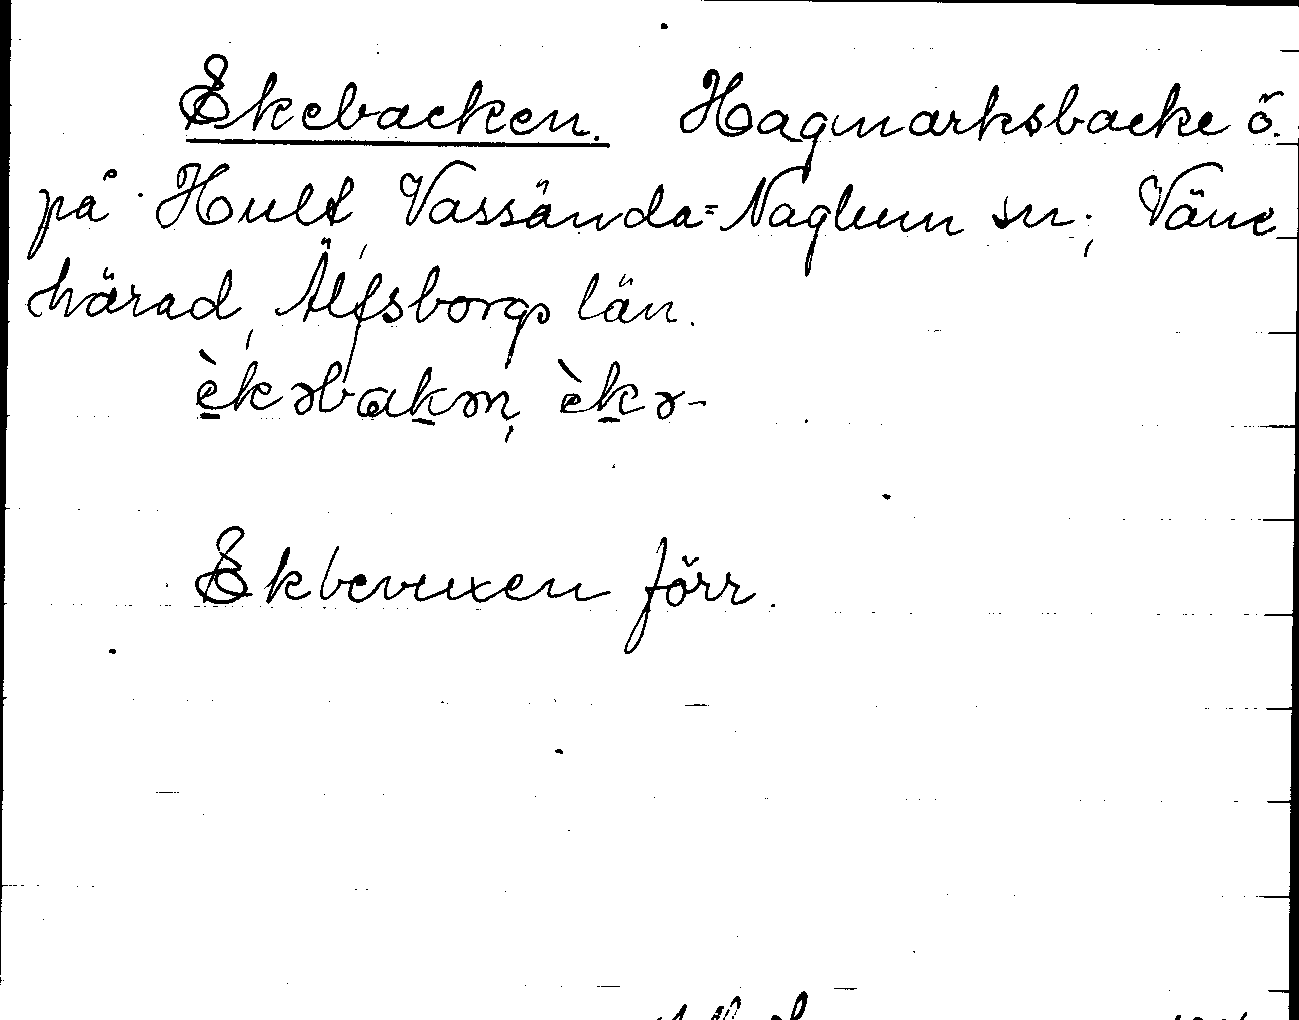 Ekebacken. Hagmarksbacke ö.
på Hult, Vassända-Naglum sn; Väne
härad, Älfsborgs län.
èkəbakən, èkə-
Ekbevuxen förr.